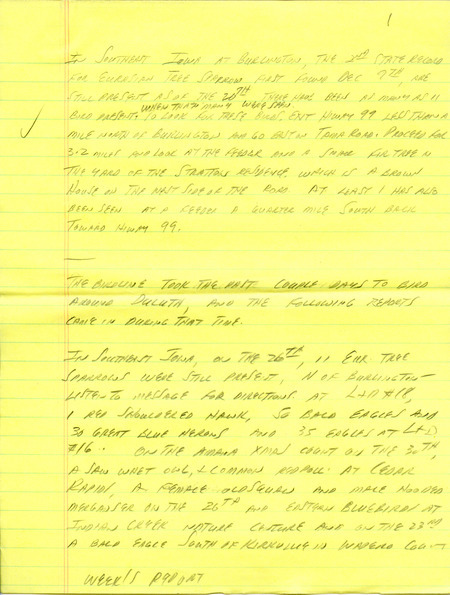 1
In Southeast Iowa at Burlington, the 2nd state record
for Eurasian Tree Sparrow first found Dec 7th, are
still present as of the 20th when that many were seen. There have been as many as 11
bird present. To look for these birds, exit Hiway 99 less than a
mile north of Burlington and go east on Tama Road. Proceed for
3.2 miles and look at the feeder and a small fur tree in
the yard of the Stratton residence which is a brown
house on the west side of the road. At least 1 has also
been seen at a feeder a quarter mile south back
toward Hiway 99.
The Birdline took the past couple days to bird
around Duluth, and the following reports
came in during that time.
In Southeast Iowa, on the 26th, 11 Eur. Tree
Sparrows were still present, N of Burlington
listen to message for directions. At L+D #18,
1 Red Shouldered Hawk, 50 Bald Eagles and
30 Great Blue Herons and 35 Eagles at L+D
#16. On the Amana Xmas Count on the 30th,
a Saw Whet Owl, + Common Redpoll. At Cedar
Rapids, a female Oldsquaw and male Hooded
Merganser on the 26th and Eastern Bluebird at
Indian Creek Nature Center and on the 23rd
a Bald Eagle south of Kirkville in Wapello Cou
Week's Report